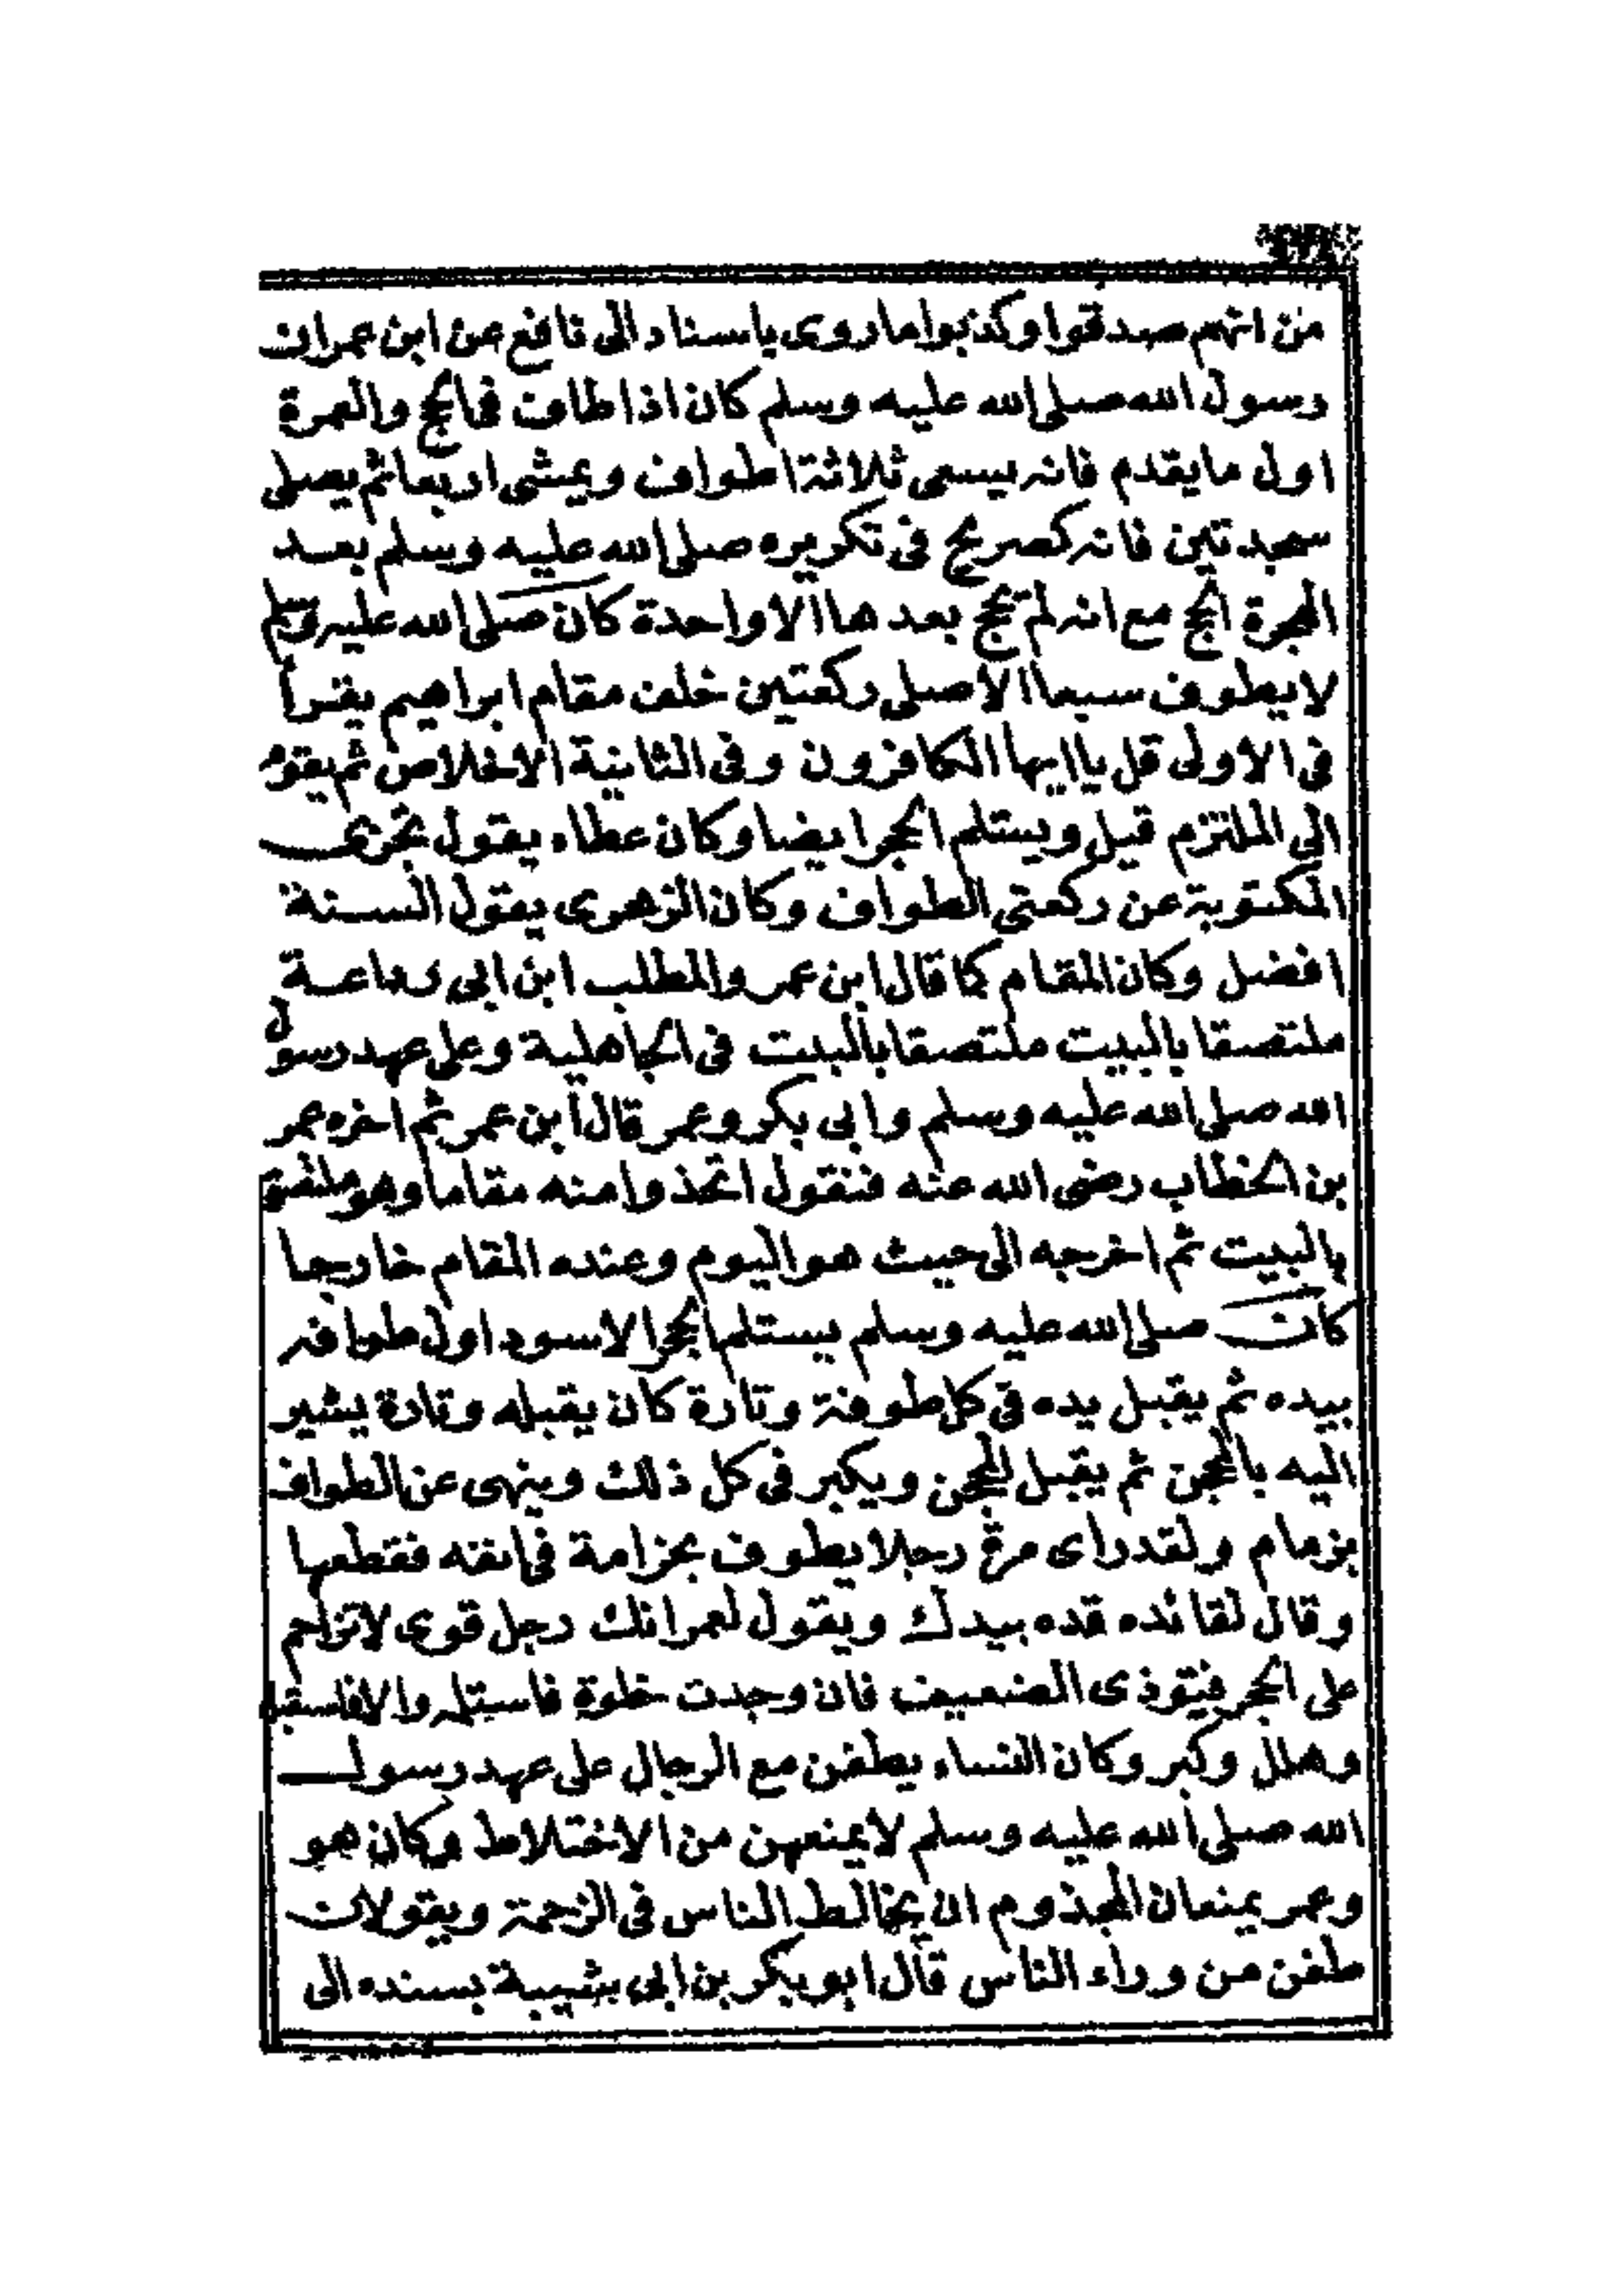 من انهم صدقوا وكذبوا ما روى باسناد الى نافع عن ابن عمران
رسول الله صلى الله عليه وسلم كان اذا طاف فى الحج والعمرة
اول ما يقدم فانه يسعى ثلاثة اطواف ويمشى اربعا ثم يصلى
سجدتين فانه كصريح فى تكريره صلى الله عليه وسلم بعد
الهجرة الحج مع انه لم يحج بعدها الا واحدة كان صلى الله عليه وسلم
لا يطوف سبعا الا صلى ركعتين خلف مقام ابراهيم يقرأ
فى الاولى قل يا ايها الكافرون وفى الثانية الاخلاص ثم يقو
الى الملتزم قيل ويستلم الحجر ايضا وكان عطاء يقول تجزى
المكتوبة عن ركعتى الطواف وكان الزهرى يقول السنة
افضل وكان المقام كما قال ابن عمر والمطلب ابن ابى وداعة
ملتصقا بالبيت ملتصقا بالبيت فى الجاهلية وعلى عهد رسول
الله صلى الله عليه وسلم وابى بكر وعمر قال ابن عمر ثم اخره عمر
بن الخطاب رضى الله عنه فنقول اتخذوا منه مقاما وهو ملتصق
بالبيت ثم اخرجه الى حيث هو اليوم وعنده المقام خارجا
كان صلى الله عليه وسلم يستلم الحجر الاسود اول طوافه
بيده ثم يقبل يده فى كل طوفة وتارة كان يقبله وتارة يشير
اليه بالمحجن ثم يقبل المحجن ويكبر فى كل ذلك وينهى عن الطواف
بزمام ولقد راى مرة رجلا يطوف بخزامة فى انفه فقطعها
وقال لقائده قده بيدك ويقول لعمر انك رجل قوى لا تزاحم
على الحجر فتوذى الضعيف فان وجدت خلوة فاستلمه والا فاستقبله
وهلل وكبر وكان النساء يطفن مع الرجال على عهد رسول
الله صلى الله عليه وسلم لا يمنعهن من الاختلاط وكان هو
وعمر يمنعان المجذوم ان يخالط الناس فى الزحمة ويقولان
طفن من وراء الناس قال ابو بكر بن ابى شيبة بسنده الى